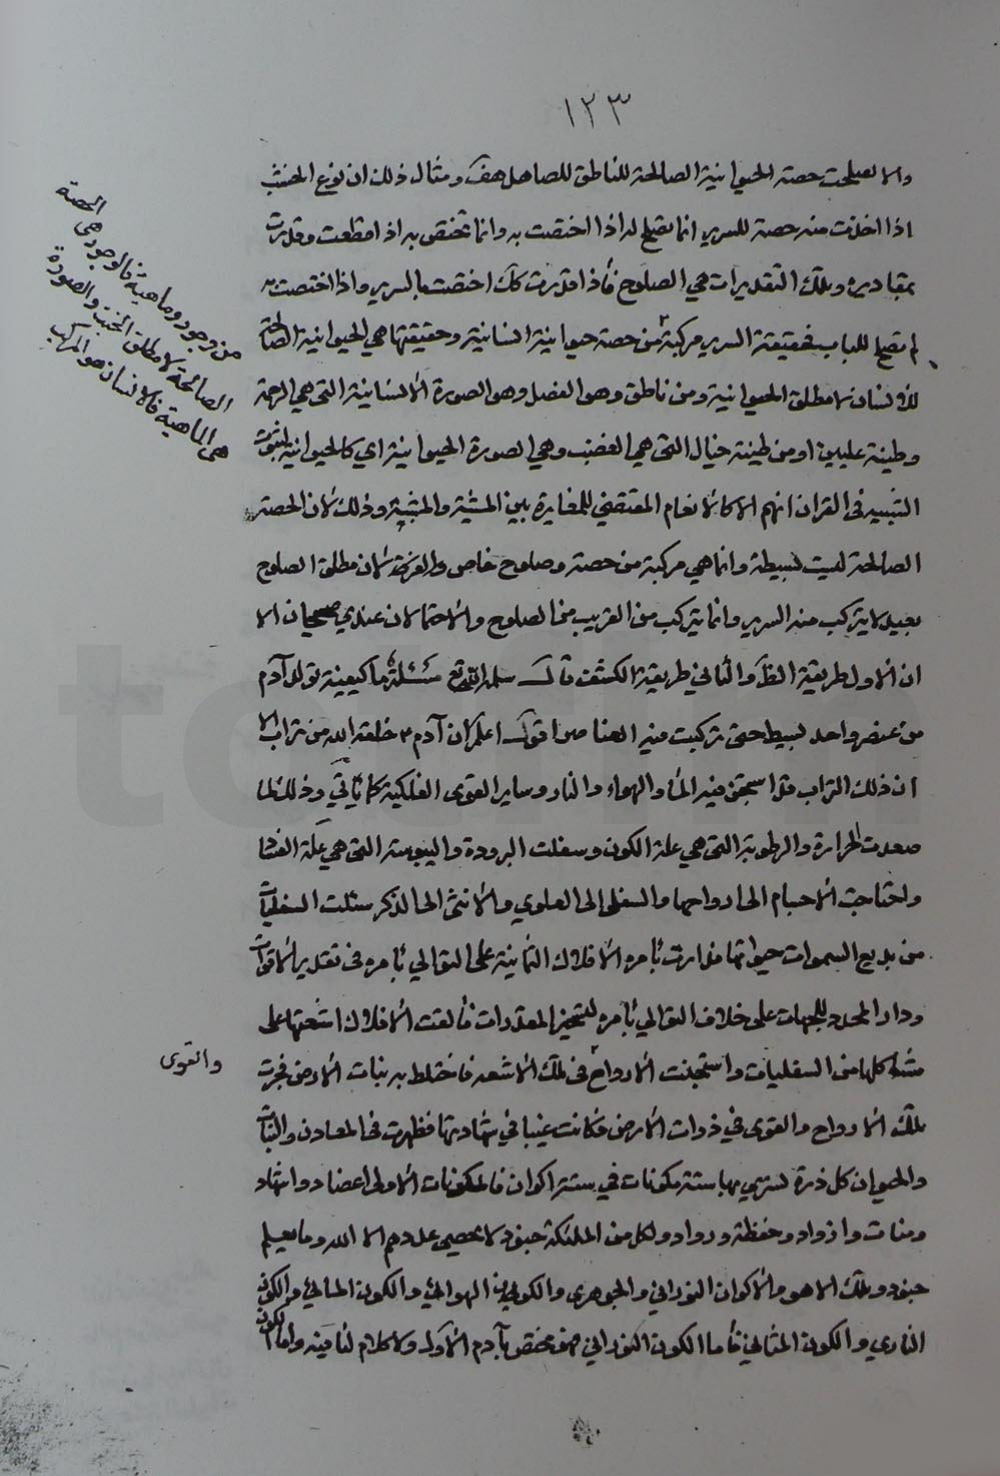 ١٢٣
والا لصلحت حصة الحيوانية الصالحة للناطق للصاهل هف ومثال ذلك ان نوع الخشب
اذا اخذت منه حصة للسرير انما تصلح له اذا اختصت به وانما تختص به اذا قطعت وقدرت
بمقاديره وتلك التقديرات هي الصلوح فاذا قدرت كك اختصت بالسرير واذا اختصت به
لم تصلح للباب فحقيقة السرير مركبة من حصة حيوانية انسانية وحقيقتها هي الحيوانية الصالحة
للانسان لا مطلق الحيوانية ومن ناطق وهو الفصل وهو الصورة الانسانية التي هي الرحمة
وطينة عليين او من طينة خبال التي هي الغضب وهي الصورة الحيوانية اي كالحيوانية لثبوت
التشبيه في القران ان هم الا كالانعام المقتضي للمغايرة بين المشبه والمشبه به وذلك لان الحصة
الصالحة ليست بسيطة وانما هي مركبة من حصة وصلوح خاص لان مطلق الصلوح
بعيد لا يتركب منه السرير وانما يتركب من القريب من الصلوح والاحتمالان عندي صحيحان الا
ان الاول طريقة الظ والثاني طريقة الكشف قال سلمه الله تع مسئلة ما كيفية تولد آدم
من عنصر واحد بسيط حتى تركبت منه العناصر اقول اعلم ان آدم ع خلقه الله من تراب الا
ان ذلك التراب قد استجن فيه الماء والهواء والنار وساير القوى الفلكية كما ياتي وذلك لما
صعدت الحرارة والرطوبة التي هي علة الكون وسفلت البرودة واليبوسة التي هي علة الفساد
واحتاجت الاجسام الى ارواحها والسفلي الى العلوي والانثى الى الذكر سئلت السفليات
من بديع السموات حيواتها فدارت بامره الافلاك الثمانية على التوالي بامره في تقدير الاقوات
ودار المحدد للجهات على خلاف التوالي بامره لتتميز المقدرات فالقت الافلاك اشعتها على
كلها من السفليات واستجنت الارواح في تلك الاشعة فاختلط به نبات الارض فجرت
والقوى
تلك الارواح والقوى في ذوات الارض فكانت غيبا في شهادتها فظهرت في المعادن والنبات
والحيوان كل ذرة تستربي بها ستة مكونات في ستة اكوان فالمكونات الاولى اعضاد واشهاد
ومناة واذواد وحفظة ورواد ولكل من الملئكة جنود لا يحصي عددهم الا الله وما يعلم
جنود ربك الا هو والاكوان النوراني والجوهري والكون الهوائي والكون المائي والكون
الناري والكون المثالي فاما الكون النوراني فهو مختص بآدم الاول ولا كلام لنا فيه واما الكون
من وجود وماهية فالوجود هي الحصة
الصالحة لا مطلق الخشب والصورة
هي الماهية فالانسان هو المركب